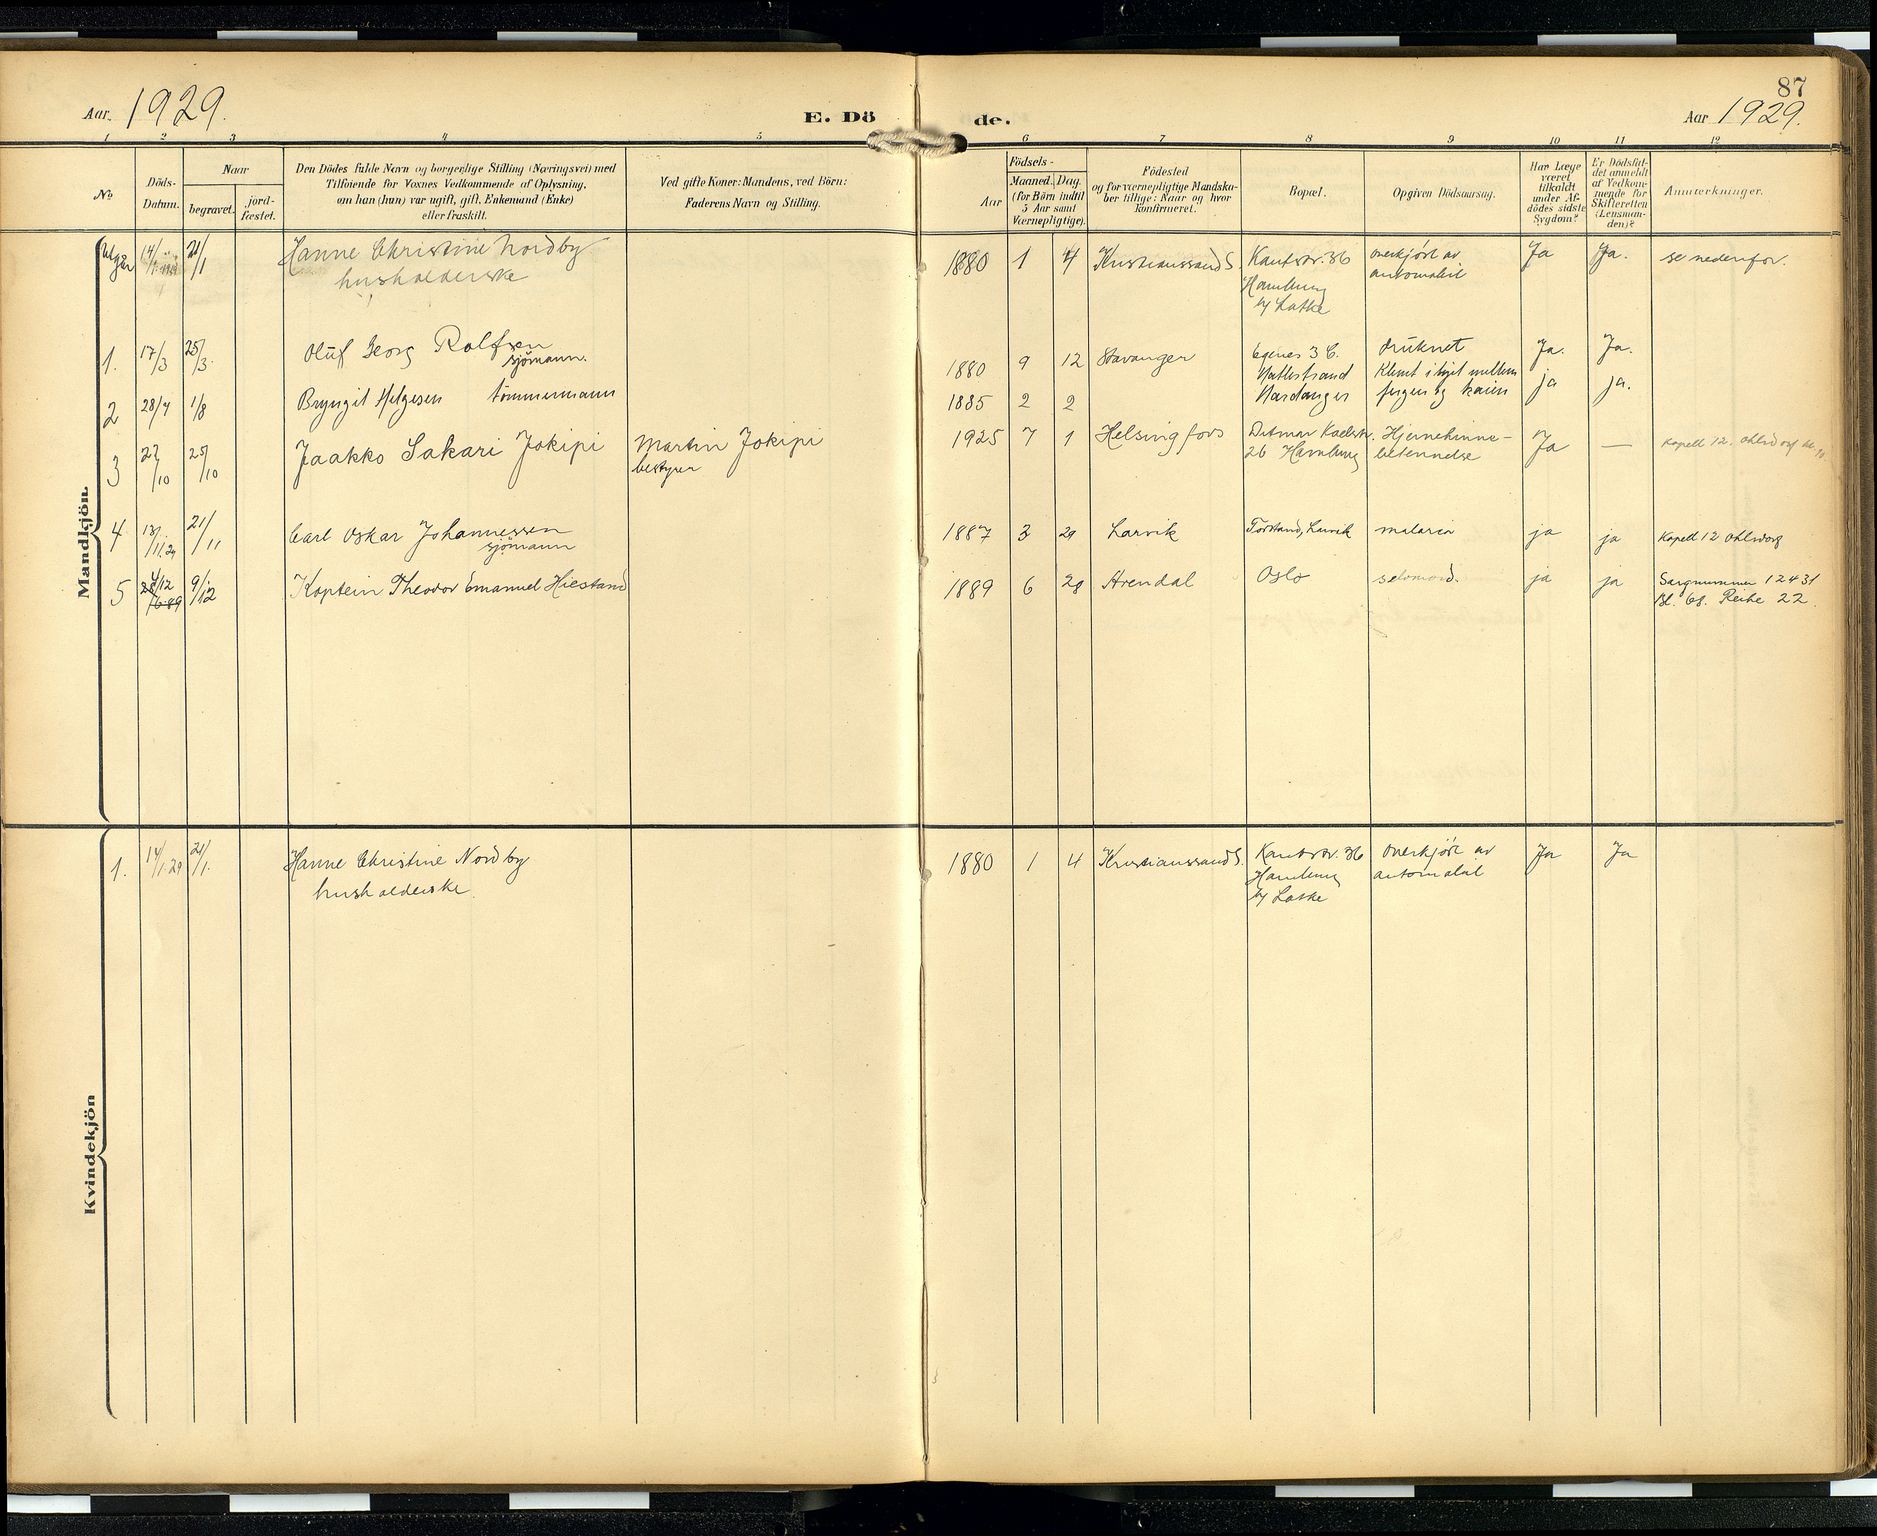 Aar 1929.
E. Dö
de.
87
Aar 1929.
1 2 3 4 5 6 7 8 9 10 11 12
No
Döds-
Datum.
Naar
begravet.
jord-
fæstet.
Den Dödes fulde Navn og borgerlige Stilling (Næringsvei) med
Tilföiende for Voxnes Vedkommende af Oplysning,
om han (hun) var ugift, gift, Enkemand (Enke)
eller fraskilt.
Ved gifte Koner: Mandens, ved Börn:
Faderens Navn og Stilling.
Födsels-
Aar
Maaned. Dag.
(for Börn indtil
5 Aar samt
Værnepligtige).
Födested
og for værnepligtige Mandska-
ber tillige: Naar og hvor
konfirmeret.
Bopæl.
Opgiven Dödsaarsag.
Har Læge
været
tilkaldt
under Af-
dödes sidste
Sygdom?
Er Dödsfal-
det anmeldt
af Vedkom-
mende for
Skifteretten
(Lensman-
den)?
Anmærkninger.
Mandkjön.
Utgår 14/1 21/1 Hanne Christine Nordby
husholderske
1880 1 4 Kristianssand S. Kantstr. 36
Hamburg
by Latke
overkjört av
automobil
Ja Ja. se nedenfor.
1. 17/3 25/3. Oluf Georg Rolfsen
sjömann.
1880 9 12 Stavanger Egenes 3 C. druknet Ja. Ja.
2 28/7 1/8 Bryngil Helgesen tömmermann
1885 2 2
Nattestrand
Hardanger
Klemt ihjel mellem
fergen og kaien
ja ja.
3 22/10 25/10 Jaakko Sakari Jokipi Martin Jokipi
bestyrer
1925 7 1 Helsingfors Ditmar Koelstr.
26 Hamburg
Hjernehinne-
betennelse
Ja — Kapell 12. Ohlsdorf
4 13/11.29 21/11 Carl Oskar Johannessen
sjömann
1887 3 29 Larvik Torstrand, Larvik malaria ja ja Kapell 12 Ohlsdorf
5 4/12 28/6-89 9/12 Kaptein Theodor Emanuel Hiestand
1889 6 28 Arendal Oslo selvmord. ja ja Sargnummer 12431
Bl. 68. Reihe 22.
Kvindekjön
1. 14/1.29 21/1. Hanne Christine Nordby
husholderske.
1880 1 4 Kristianssand S. Kantstr. 36
Hamburg
by Latke
overkjört av
automobil
Ja Ja